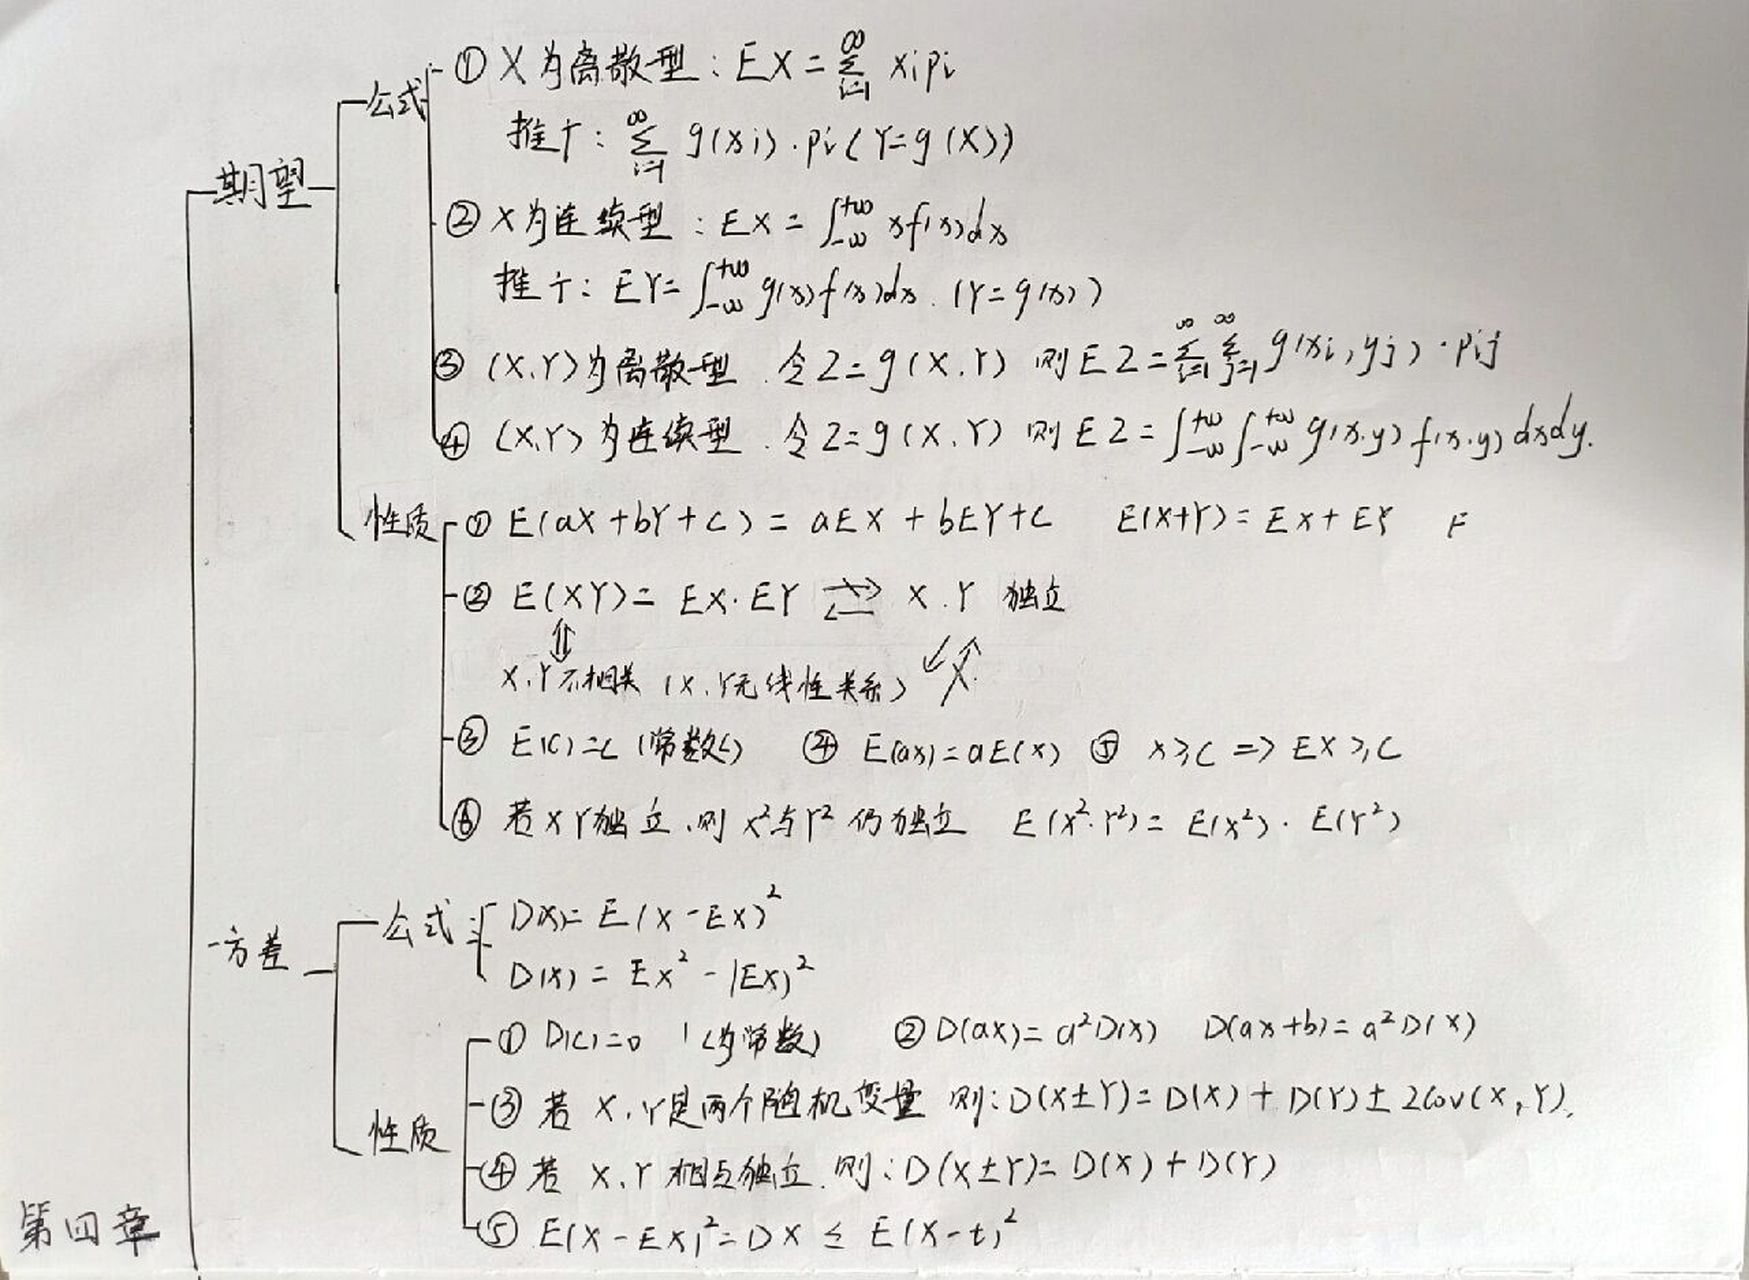 ① X为离散型：EX = ∑_{i=1}^{∞} xipi
公式
推广：∑_{i=1}^{∞} g(xi)·pi (Y=g(X))
期望
② X为连续型：EX = ∫_{-∞}^{+∞} xf(x)dx
推广：EY = ∫_{-∞}^{+∞} g(x)f(x)dx. (Y=g(x))
③ (X,Y)为离散型. 令Z=g(X,Y) 则EZ = ∑_{i=1}^{∞} ∑_{j=1}^{∞} g(xi,yj)·pij
④ (X,Y)为连续型. 令Z=g(X,Y) 则EZ = ∫_{-∞}^{+∞} ∫_{-∞}^{+∞} g(x,y) f(x,y) dxdy.
性质 ① E(aX+bY+C) = aEX + bEY+C E(X+Y) = EX + EY E
② E(XY) = EX·EY ⇄ X,Y 独立
⇕
X,Y不相关 (X,Y无线性关系) ↙↗
③ E(C)=C (常数C) ④ E(ax)=aE(x) ⑤ x≥C => EX≥C
⑥ 若XY独立,则X²与Y²仍独立 E(X²·Y²) = E(X²)·E(Y²)
公式: D(X)= E(X-EX)²
方差
D(X) = EX² - (EX)²
① D(C)=0 (C为常数) ② D(ax)=a²D(x) D(ax+b)=a²D(x)
③ 若X,Y是两个随机变量 则:D(X±Y)=D(X)+D(Y)±2Cov(X,Y).
性质
④ 若X,Y相互独立.则:D(X±Y)=D(X)+D(Y)
第四章
⑤ E(X-EX)²=DX ≤ E(X-t)²